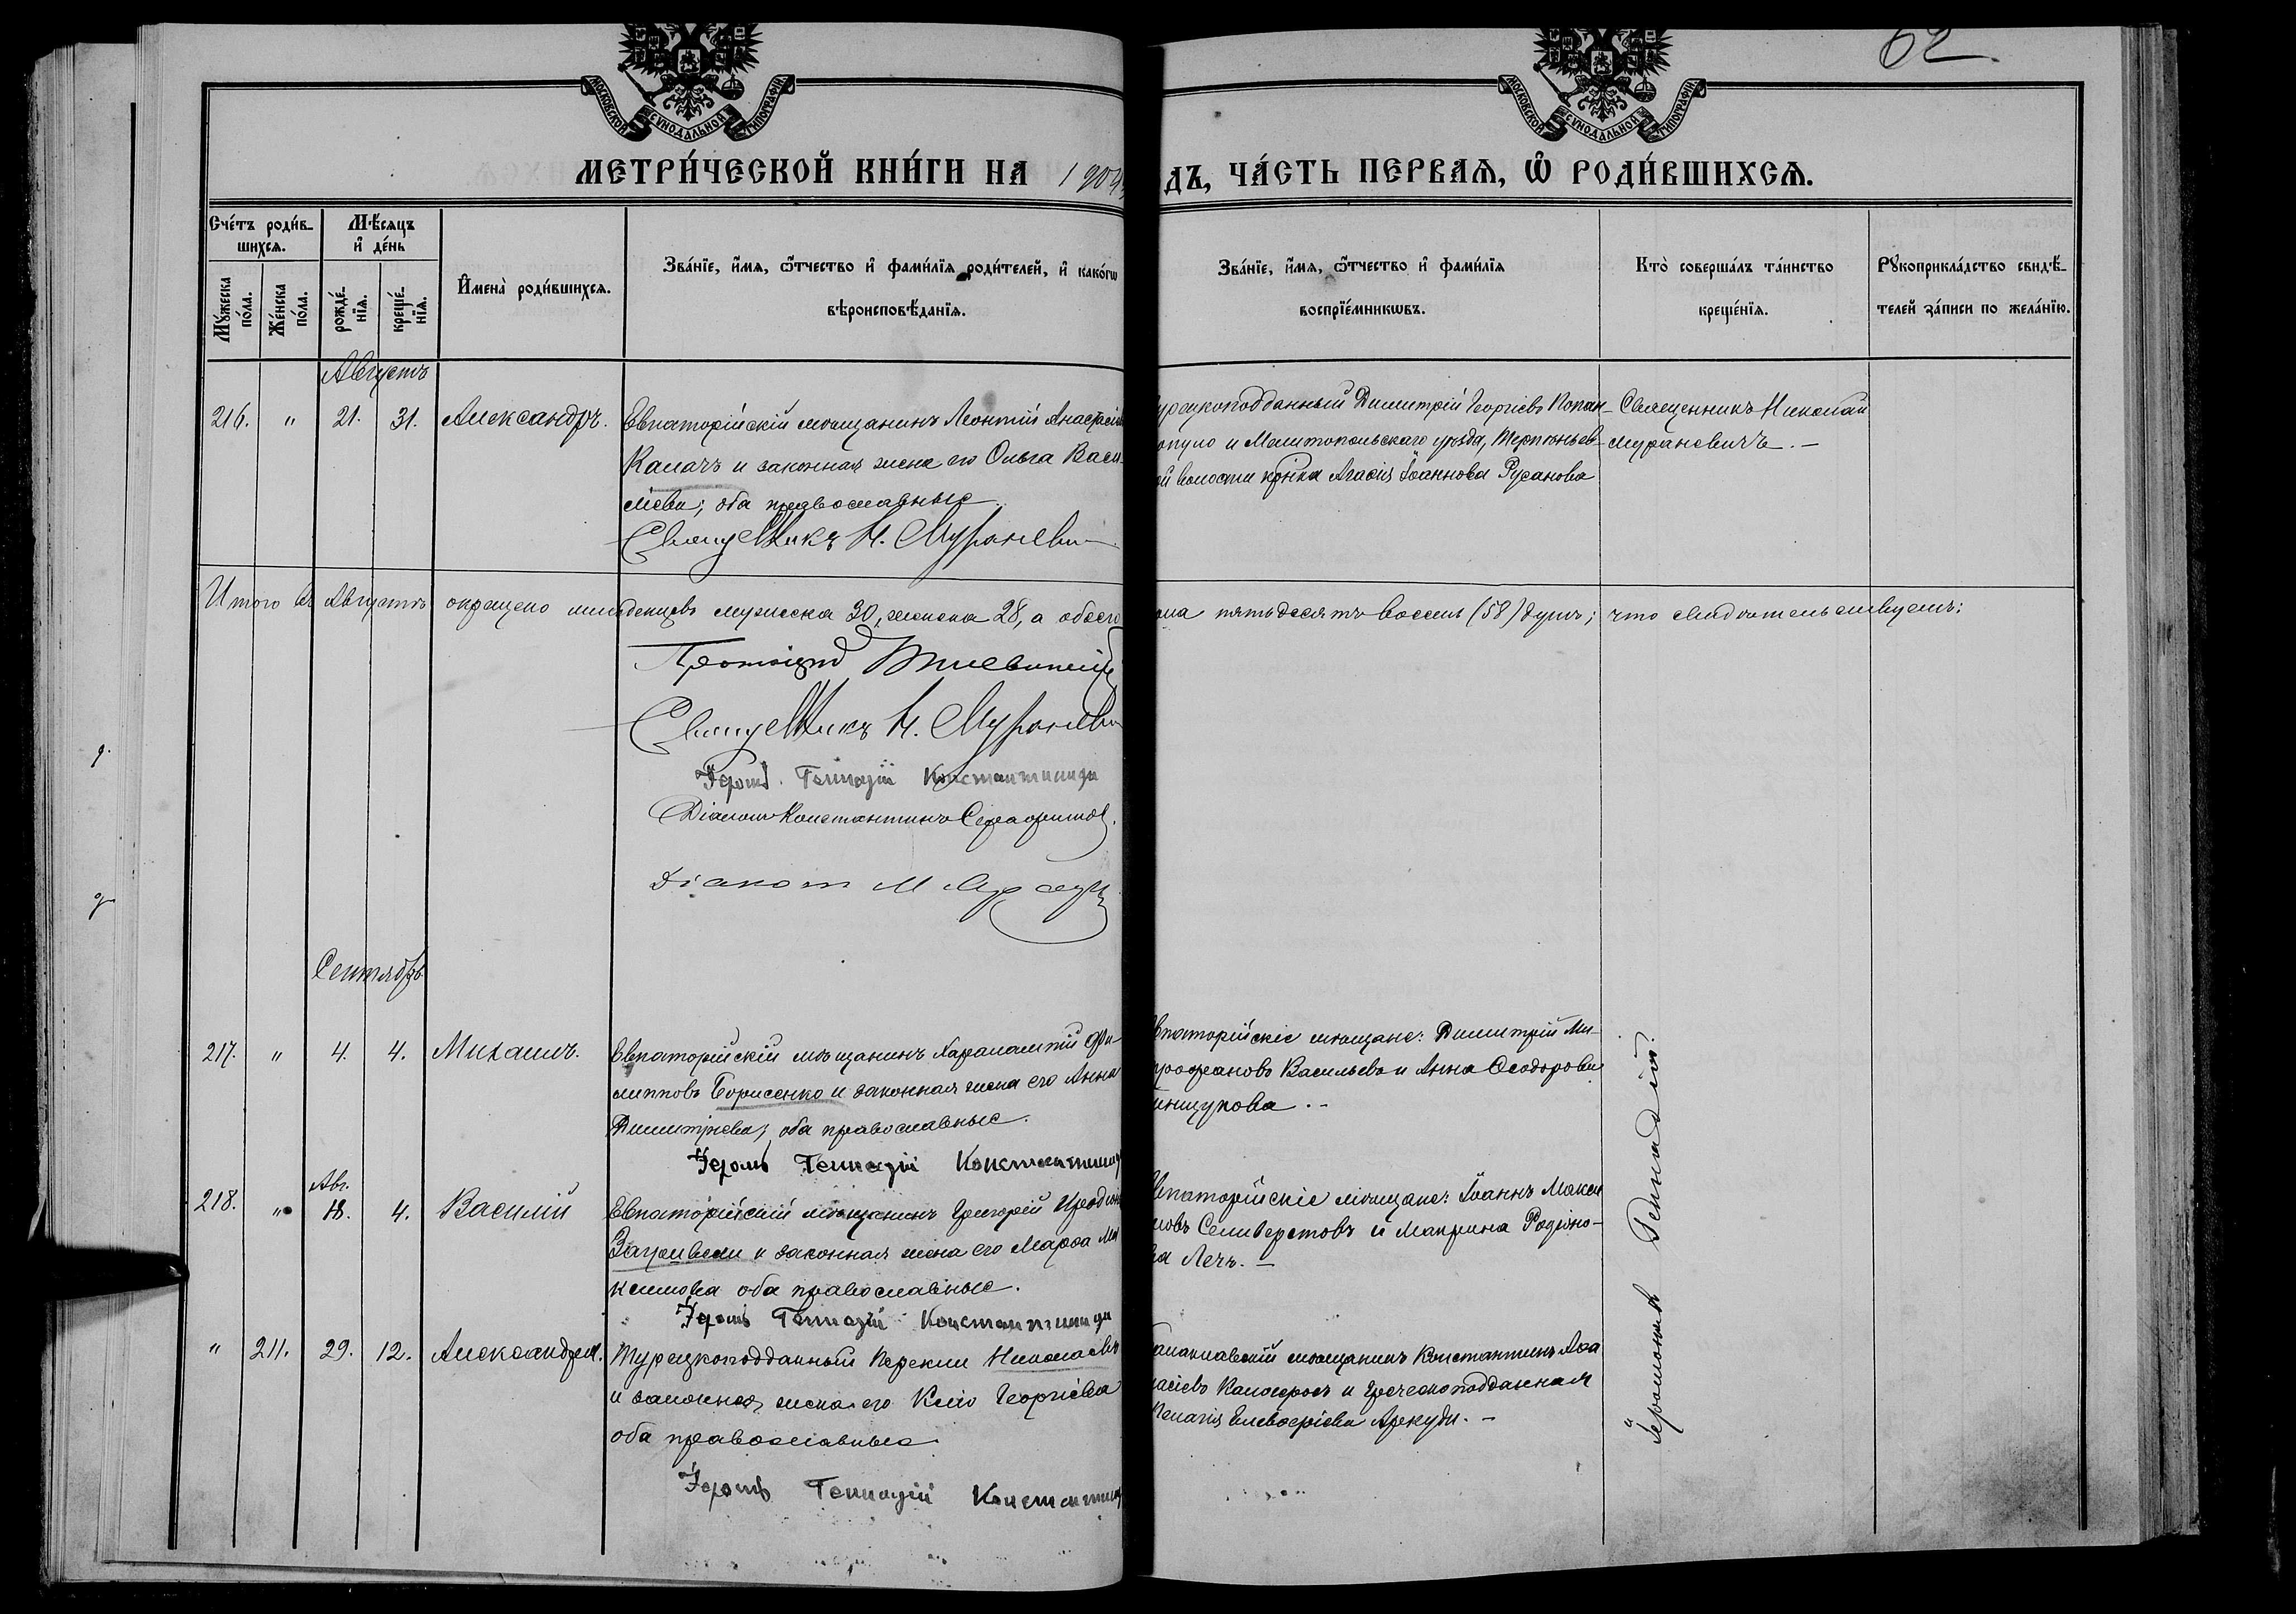 62
МОСКОВСКОЙ СѴНОДАЛЬНОЙ ТИПОГРАФІИ
МОСКОВСКОЙ СѴНОДАЛЬНОЙ ТИПОГРАФІИ
МЕТРИ́ЧЕСКОЙ КНИ́ГИ НА 1904
дъ, ЧА́СТЬ ПЕРВАѦ, Ѡ҆ РОДИ́ВШИХСѦ.
Сче́тъ роди́в-
шихсѧ.
Мꙋ́жеска
по́ла.
Же́нска
по́ла.
Мѣ́сѧцъ
и҆ де́нь
рожде́-
нїѧ.
креще́-
нїѧ.
И҆мена̀ роди́вшихсѧ.
Зва́нїе, и҆́мѧ, ѻ҆́тчество и҆ фами́лїѧ роди́телей, и҆ како́гѡ
вѣроисповѣ́данїѧ.
Зва́нїе, и҆́мѧ, ѻ҆́тчество и҆ фами́лїѧ
воспрїе́мникѡвъ.
Кто̀ соверша́лъ та́инство
креще́нїѧ.
Рꙋкоприкла́дство свидѣ́-
телей за́писи по жела́нїю.
Августъ
216. " 21. 31. Александръ.
Евпаторійскій мѣщанинъ Леонтій
Калачъ и законная жена его Ольга Васи-
лiева; оба православные
Священникъ Н. Мураневи
урецкоподданный Димитрій Георгіевъ Копан-
опуло и Мелитопольскаго уѣзда,
ой волости Іоаннова Русанова
Священникъ Николай
Мураневичъ. -
Итого въ Августѣ окрещено младенцевъ мужеска 30, женска 28, а обоего
ола пятьдесятъ восемь (58) душъ; что свидѣтельствуемъ:
Протоіерей
Священникъ Н. Мураневи
Іером. Геннадій Константиниди
Діаконъ Константинъ Серафимов
Діаконъ М
Сентябрь
217. " 4. 4. Михаилъ.
Евпаторійскій мѣщанинъ Харалампій Фи-
липповъ Борисенко и законная жена его Анна
Димитріева; оба православные.
Іером Геннадій Константини
впаторійскіе мѣщане: Димитрій Ми-
трофановъ Васильевъ и Анна Ѳеодорова
Авг.
218. " 18. 4. Василій
Евпаторійскій мѣщанинъ Григорій
и законная жена его Марѳа Ма
ксимова оба православные.
Іером Геннадій Константиниди
впаторійскіе мѣщане: Іоаннъ Макси
мовъ Селиверстовъ и Макрина Родіоно-
ва Лечъ. -
" 211. 29. 12. Александра.
Турецкоподданный Николаевъ
и законная жена его Георгіева
оба православные.
Іером Геннадій Константини
алаклавскій мѣщанинъ Константинъ Аѳа
насіевъ и греческоподданная
Пелагія Елевѳеріева Аркуди. -
Іеромонахъ Геннадій.